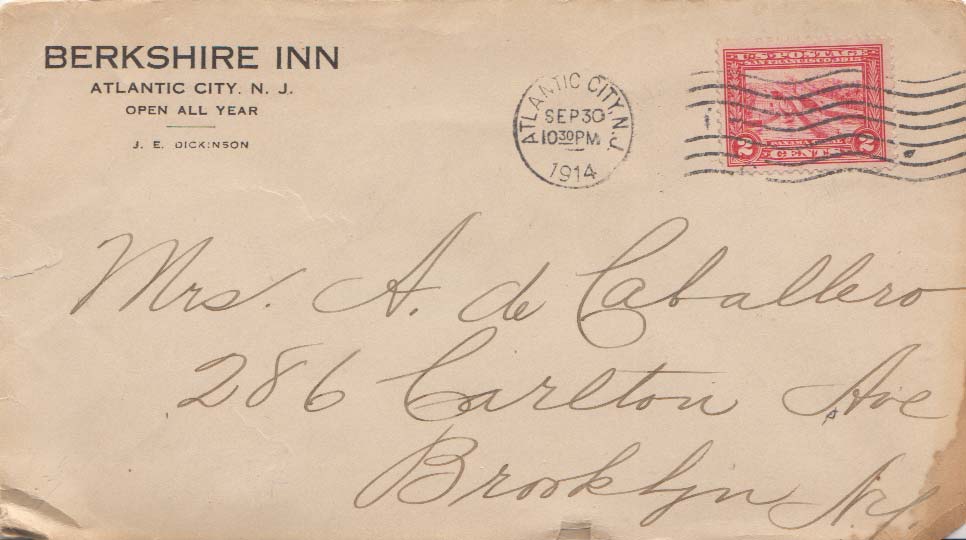 BERKSHIRE INN
ATLANTIC CITY, N. J.
OPEN ALL YEAR
J. E. DICKINSON
ATLANTIC CITY, N.J.
SEP 30
10 30 PM
1914
U.S. POSTAGE
SAN FRANCISCO, 1915
2 CENTS 2
Mrs. A. de Caballero
286 Carlton Ave
Brooklyn N.Y.